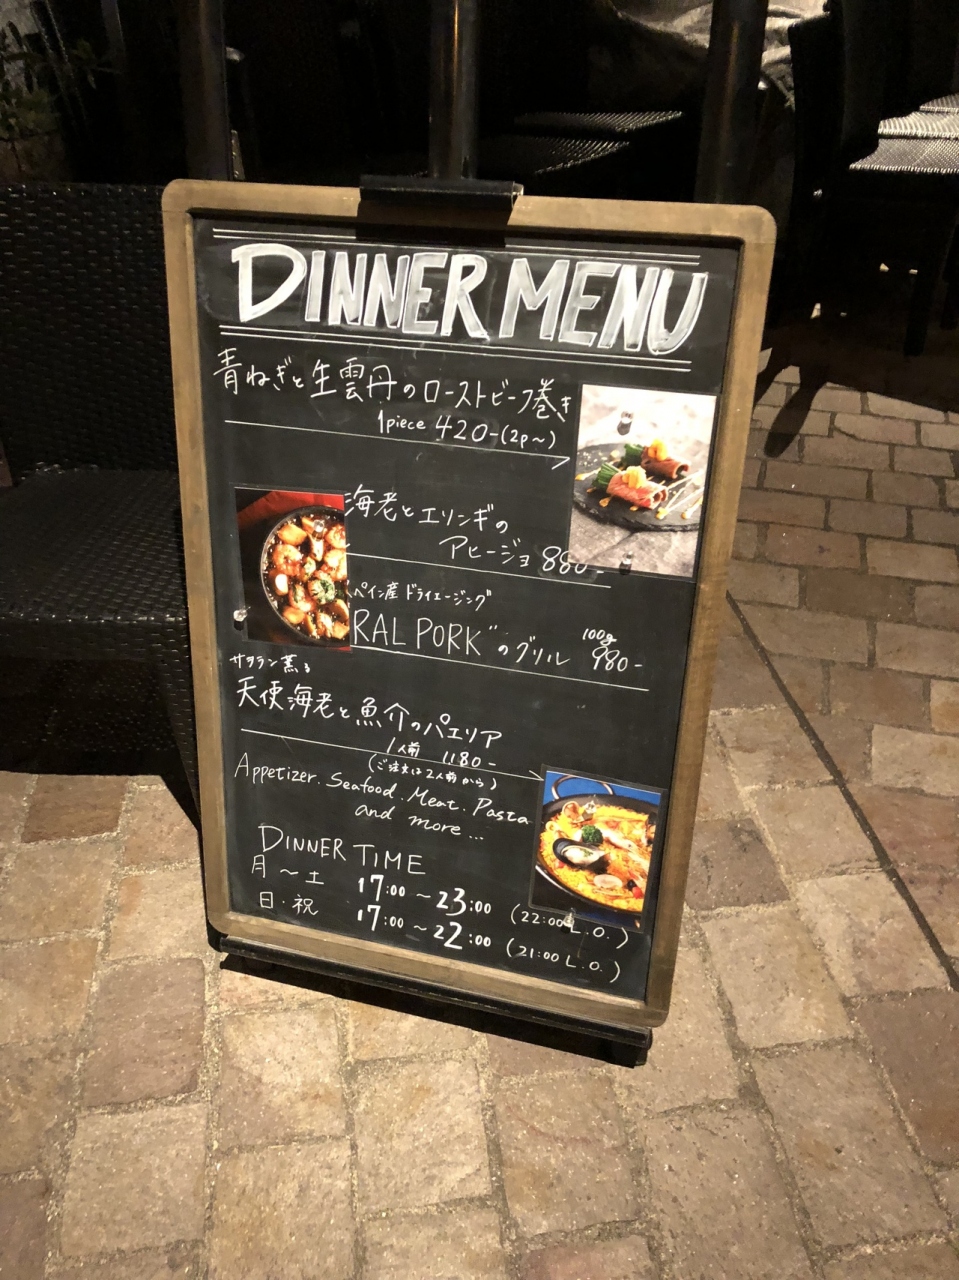 DINNER MENU
青ねぎと生雲丹のローストビーフ巻き
1piece 420-(2p~)
海老とエリンギの
アヒージョ 880-
ペイン産 ドライエージング
RAL PORK"のグリル 100g 980-
サフラン薫る
天使海老と魚介のパエリア
1人前 1180-
(ご注文は2人前から)
Appetizer. Seafood. Meat. Pasta
and more...
DINNER TIME
月~土 17:00 ~23:00 (22:00 L.O.)
日·祝 17:00 ~22:00 (21:00 L.O.)